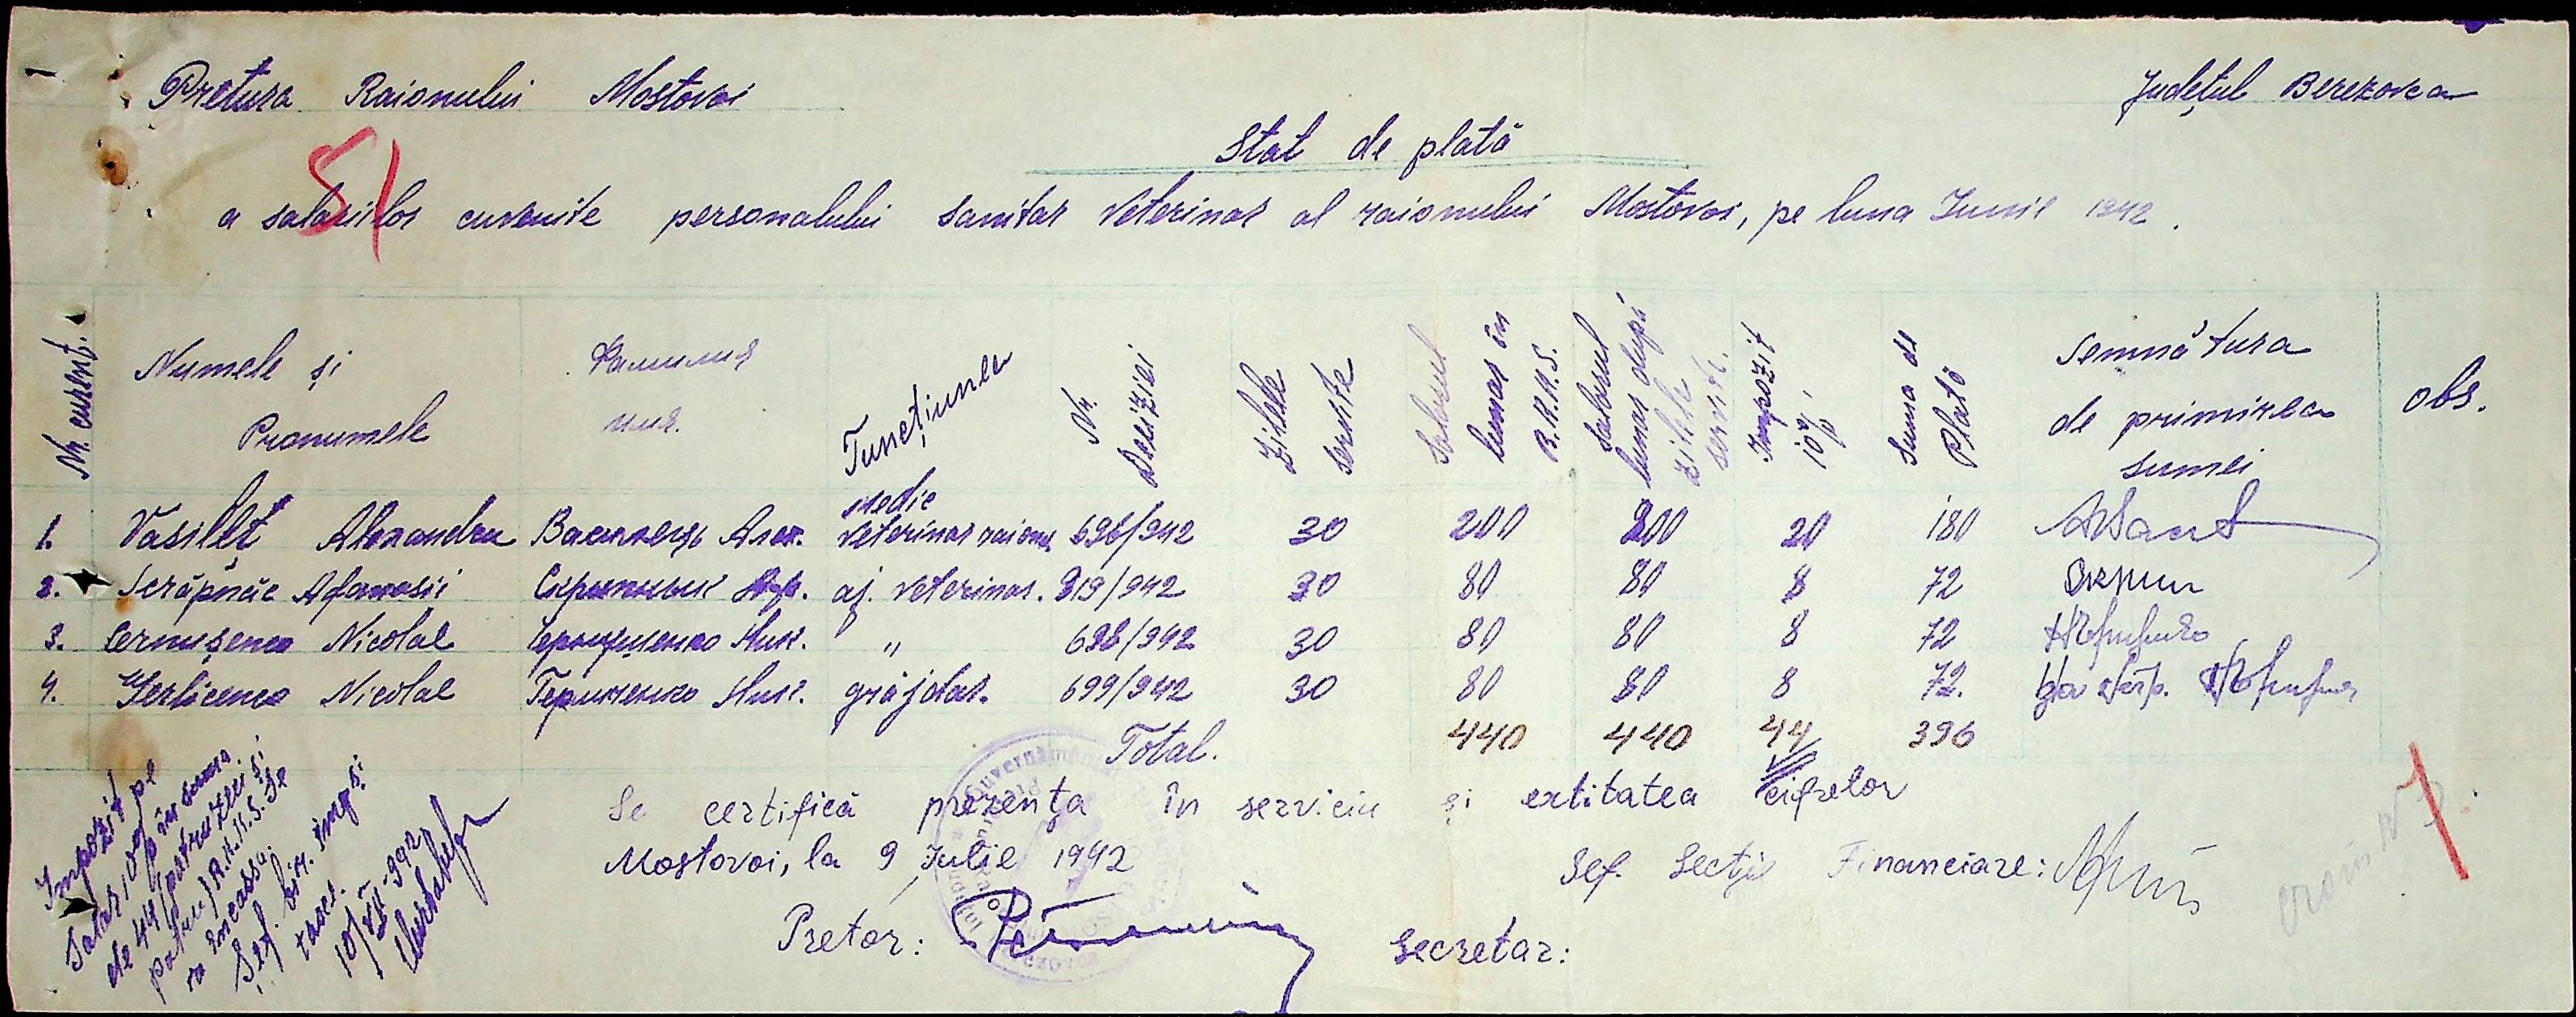 Pretura Raionului Mostovoi
Județul Berezovca
51
Stat de plată
a salariilor cuvenite personalului sanitar veterinar al raionului Mostovoi, pe luna Iunie 1942.
Nr. curent. Numele și Pronumele Фамилия имя. Funcțiunea Nr. Deciziei Zilele servite Salarul lunar în R.K.K.S. Salarul lunar după zilele servite. Impozit 10% Suma de Plată Semnătura de primirea sumei obs.
1. Vasileț Alexandru Василець Алек. medic veterinar raion 696/942 30 200 200 20 180
2. Scrăpnic Afanasii Скрипник Аф. aj. veterinar. 319/942 30 80 80 8 72 Скрип
3. Cernușenco Nicolae Чернушенко Ник. " 698/942 30 80 80 8 72
4. Gerlicenco Nicolae Ник. grăjdar. 699/942 30 80 80 8 72.
Total. 440 440 44 396
Se certifică prezența în serviciu și extitatea cifrelor
Mostovoi, la 9 Iulie 1942
Șef. Secției Financiare:
Pretor:
Secretar:
Impozit pe
Salar 10% în suma
de 44/patruzeci și
patru/ R.K.K.S. Se
va încassa.
Șef. bir. imp. și
taxe.
10/VII-942